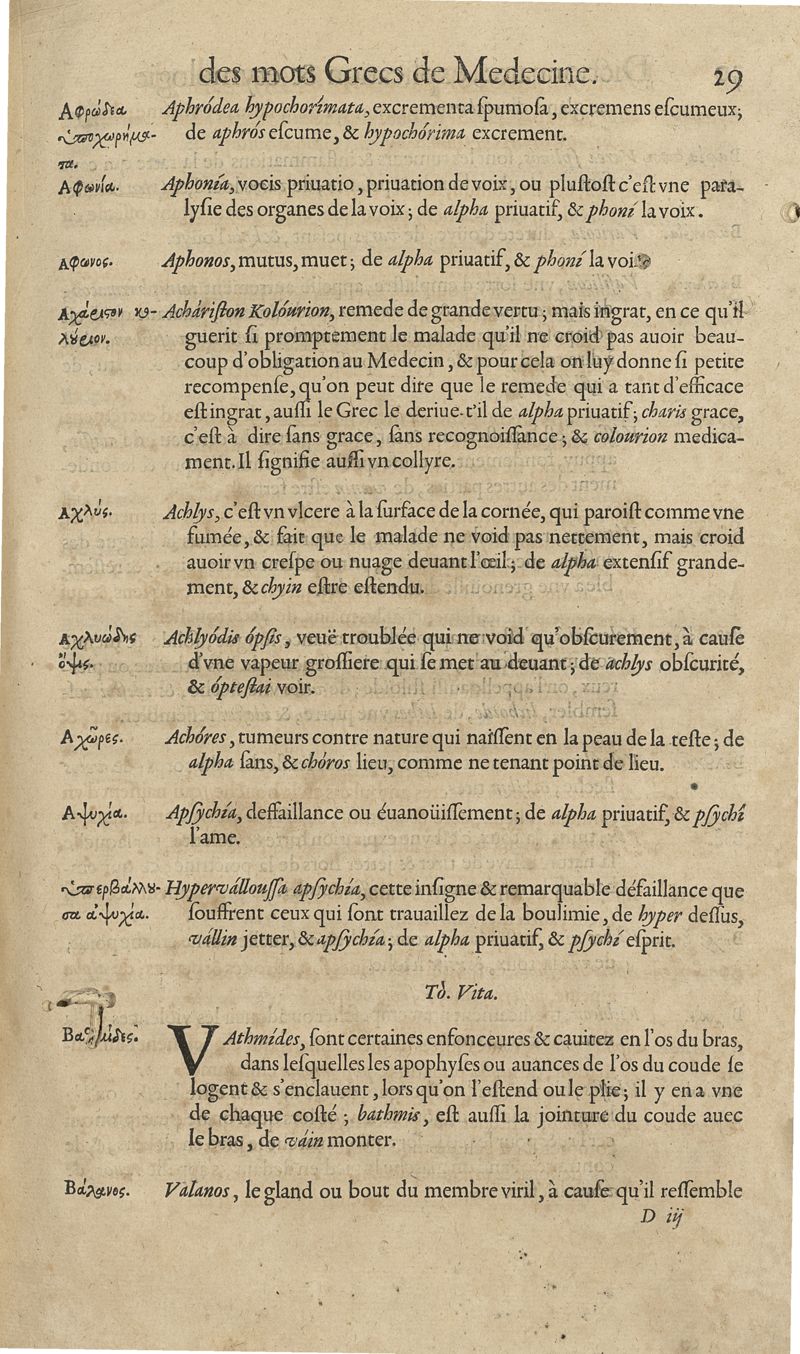 des mots Grecs de Medecine. 29
Αφρώδεα Aphródea hypochorímata, excrementa ſpumoſa, excremens eſcumeux;
ὑποχωρήμα- de aphrós eſcume, & hypochórima excrement.
τα.
Αφωνία. Aphonía, vocis priuatio, priuation de voix, ou pluſtoſt c'eſt vne para-
lyſie des organes de la voix; de alpha priuatif, & phoní la voix.
Αφωνος. Aphonos, mutus, muet; de alpha priuatif, & phoní la voi
Αχάριστον κο- Acháriſton Kolóurion, remede de grande vertu; mais ingrat, en ce qu'il
λύριον. guerit ſi promptement le malade qu'il ne croid pas auoir beau-
coup d'obligation au Medecin, & pour cela on luy donne ſi petite
recompenſe, qu'on peut dire que le remede qui a tant d'efficace
eſt ingrat, auſſi le Grec le deriue-t'il de alpha priuatif; charis grace,
c'eſt à dire ſans grace, ſans recognoiſſance; & colourion medica-
ment. Il ſignifie auſſi vn collyre.
Αχλύς. Achlys, c'eſt vn vlcere à la ſurface de la cornée, qui paroiſt comme vne
fumée, & fait que le malade ne void pas nettement, mais croid
auoir vn creſpe ou nuage deuant l'œil; de alpha extenſif grande-
ment, & chyin eſtre eſtendu.
Αχλυώδης Achlyódis ópſis, veuë troublée qui ne void qu'obſcurement, à cauſe
ὄψις. d'vne vapeur groſſiere qui ſe met au deuant; de achlys obſcurité,
& ópteſtai voir.
Αχῶρες. Achóres, tumeurs contre nature qui naiſſent en la peau de la teſte; de
alpha ſans, & chóros lieu, comme ne tenant point de lieu.
Αψυχία. Apſychía, deffaillance ou éuanoüiſſement; de alpha priuatif, & pſychî
l'ame.
ὑπερβάλλου- Hypervállouſſa apſychía, cette inſigne & remarquable défaillance que
σα ἀψυχία. ſouffrent ceux qui ſont trauaillez de la boulimie, de hyper deſſus,
vállin jetter, & apſychía; de alpha priuatif, & pſychí eſprit.
Tò. Vita.
Βαθμίδες. VAthmídes, ſont certaines enfonceures & cauitez en l'os du bras,
dans leſquelles les apophyſes ou auances de l'os du coude ſe
logent & s'enclauent, lors qu'on l'eſtend ou le plie; il y en a vne
de chaque coſté; bathmis, eſt auſſi la jointure du coude auec
le bras, de váin monter.
Βάλανος. Valanos, le gland ou bout du membre viril, à cauſe qu'il reſſemble
D iij